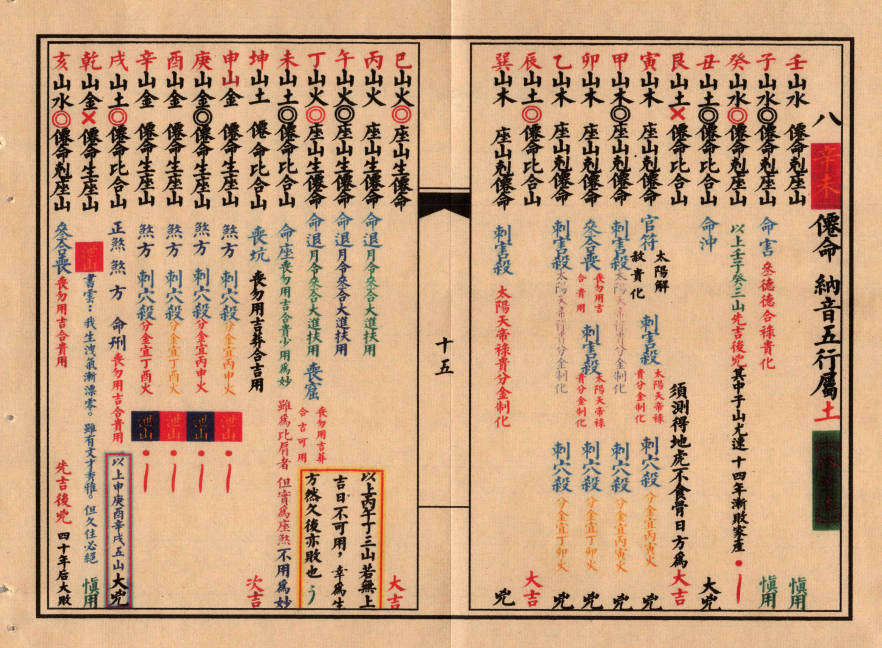 八 辛未 僊命 納音五行屬土
壬山水 僊命剋座山 慎用
子山水◎僊命剋座山 命害 叅德德合祿貴化 慎用
癸山水◎僊命剋座山 以上壬子癸三山先吉後兇其中子山尤速 十四年漸敗家產
丑山土◎僊命比合山 命沖 大兇
艮山土×僊命比合山 須測得地虎不食骨日方爲大吉
寅山木 座山剋僊命 官符 太陽解 赦貴化 刺害殺 太陽天帝祿貴分金制化 刺穴殺 分金宜丙寅火 兇
甲山木◎座山剋僊命 刺害殺太陽天帝祿貴分金制化 刺穴殺 分金宜丙寅火 兇
卯山木 座山剋僊命 叅合喪 喪勿用吉合貴用 刺害殺 太陽天帝祿貴分金制化 刺穴殺 分金宜丁卯火 兇
乙山木◎座山剋僊命 刺害殺太陽天帝祿貴分金制化 刺穴殺 分金宜丁卯火 兇
辰山土◎僊命比合山 大吉
巽山木 座山剋僊命 刺害殺 太陽天帝祿貴分金制化 兇
十五
巳山火◎座山生僊命 大吉
丙山火 座山生僊命 命退月令叅合大進扶用
午山火◎座山生僊命 命退月令叅合大進扶用
丁山火◎座山生僊命 命退月令叅合大進扶用 喪窟 喪勿用吉葬合吉可用
以上丙午丁三山若無上
吉日不可用，幸爲生
方然久後亦敗也
未山土◎僊命比合山 命座喪勿用吉合貴少用爲妙 雖爲比肩者 但實爲座煞不用爲妙
坤山土 僊命比合山 喪坑 喪勿用吉葬合吉用 次吉
申山金 僊命生座山 煞方 刺穴殺分金宜丙申火 泄山
庚山金◎僊命生座山 煞方 刺穴殺分金宜丙申火 泄山
酉山金 僊命生座山 煞方 刺穴殺分金宜丁酉火 泄山
辛山金 僊命生座山 煞方 刺穴殺分金宜丁酉火 泄山
戌山土◎僊命比合山 正煞煞方 命刑喪勿用吉合貴用
以上申庚酉辛戌五山大兇
乾山金×僊命生座山 泄山 書雲：我生洩氣漸漂零。雖有文才秀雅。但久住必絕 慎用
亥山水◎僊命剋座山 叅合喪 喪勿用吉合貴用 先吉後兇 四十年后大敗